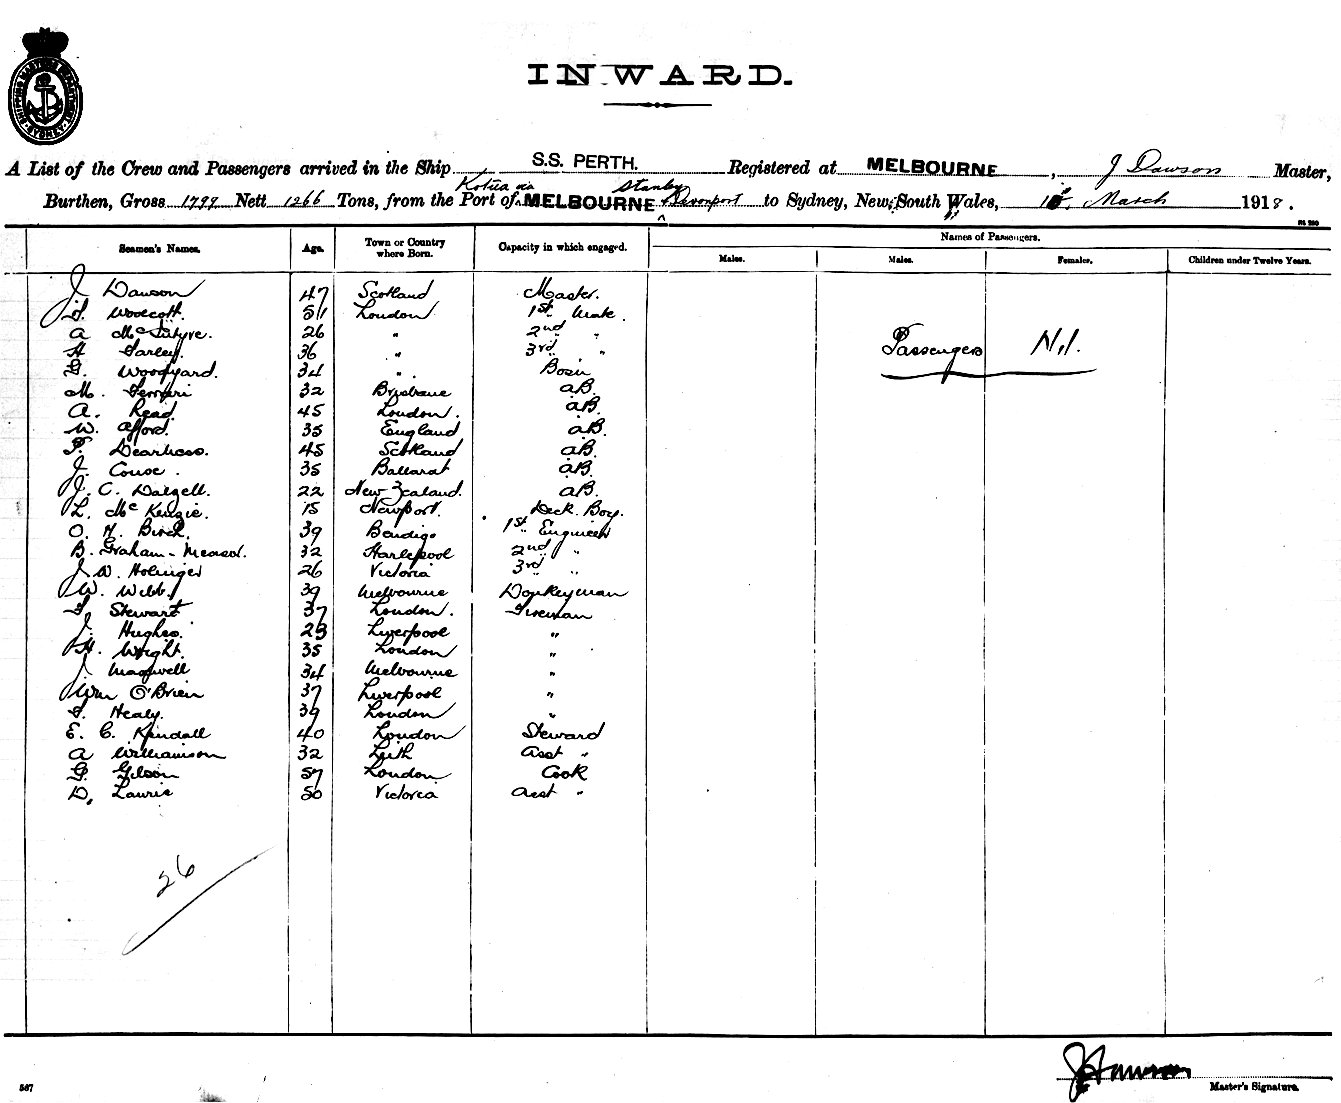 SHIPPING MASTER'S DEPARTMENT SYDNEY
INWARD.
A List of the Crew and Passengers arrived in the Ship S.S. PERTH. Registered at MELBOURNE, J Dawson Master,
via Stanley
Burthen, Gross 1799 Nett 1266 Tons, from the Port of MELBOURNE Devonport to Sydney, New South Wales, March 1918.
Seamen's Names. Age. Town or Country where Born. Capacity in which engaged. Names of Passengers.
Males. Males. Females. Children under Twelve Years.
J Dawson 47 Scotland Master.
Woolcott. 51 London 1st Mate.
A McIntyre. 26 " 2nd "
H Farley. 36 " 3rd "
Passengers Nil.
G. Woodyard. 34 " Bosn
M. Ferrari 32 Brisbane AB.
A. Read. 45 London. AB.
W. Afford. 35 England AB.
Dearness. 45 Scotland AB.
J. Couse. 35 Ballarat AB.
J. C. Dalzell. 22 New Zealand. AB.
L. McKenzie. 15 Newport. Deck Boy.
O. H. Birch. 39 Bendigo 1st Engineer
B. Graham- 32 Hartlepool 2nd "
J W. Holinger 26 Victoria 3rd "
W. Webb. 39 Melbourne Donkeyman
Stewart 37 London. Fireman
J. Hughes. 23 Liverpool "
H. Wright. 35 London "
J Maxwell 34 Melbourne "
Wm O'Brien 37 Liverpool "
Healy. 39 London "
E. C. Kendall 40 London Steward
A Williamson 32 Leith Asst "
G. Gilson 57 London Cook
D. Laurie 50 Victoria Asst "
26
J Dawson
Master's Signature.
567